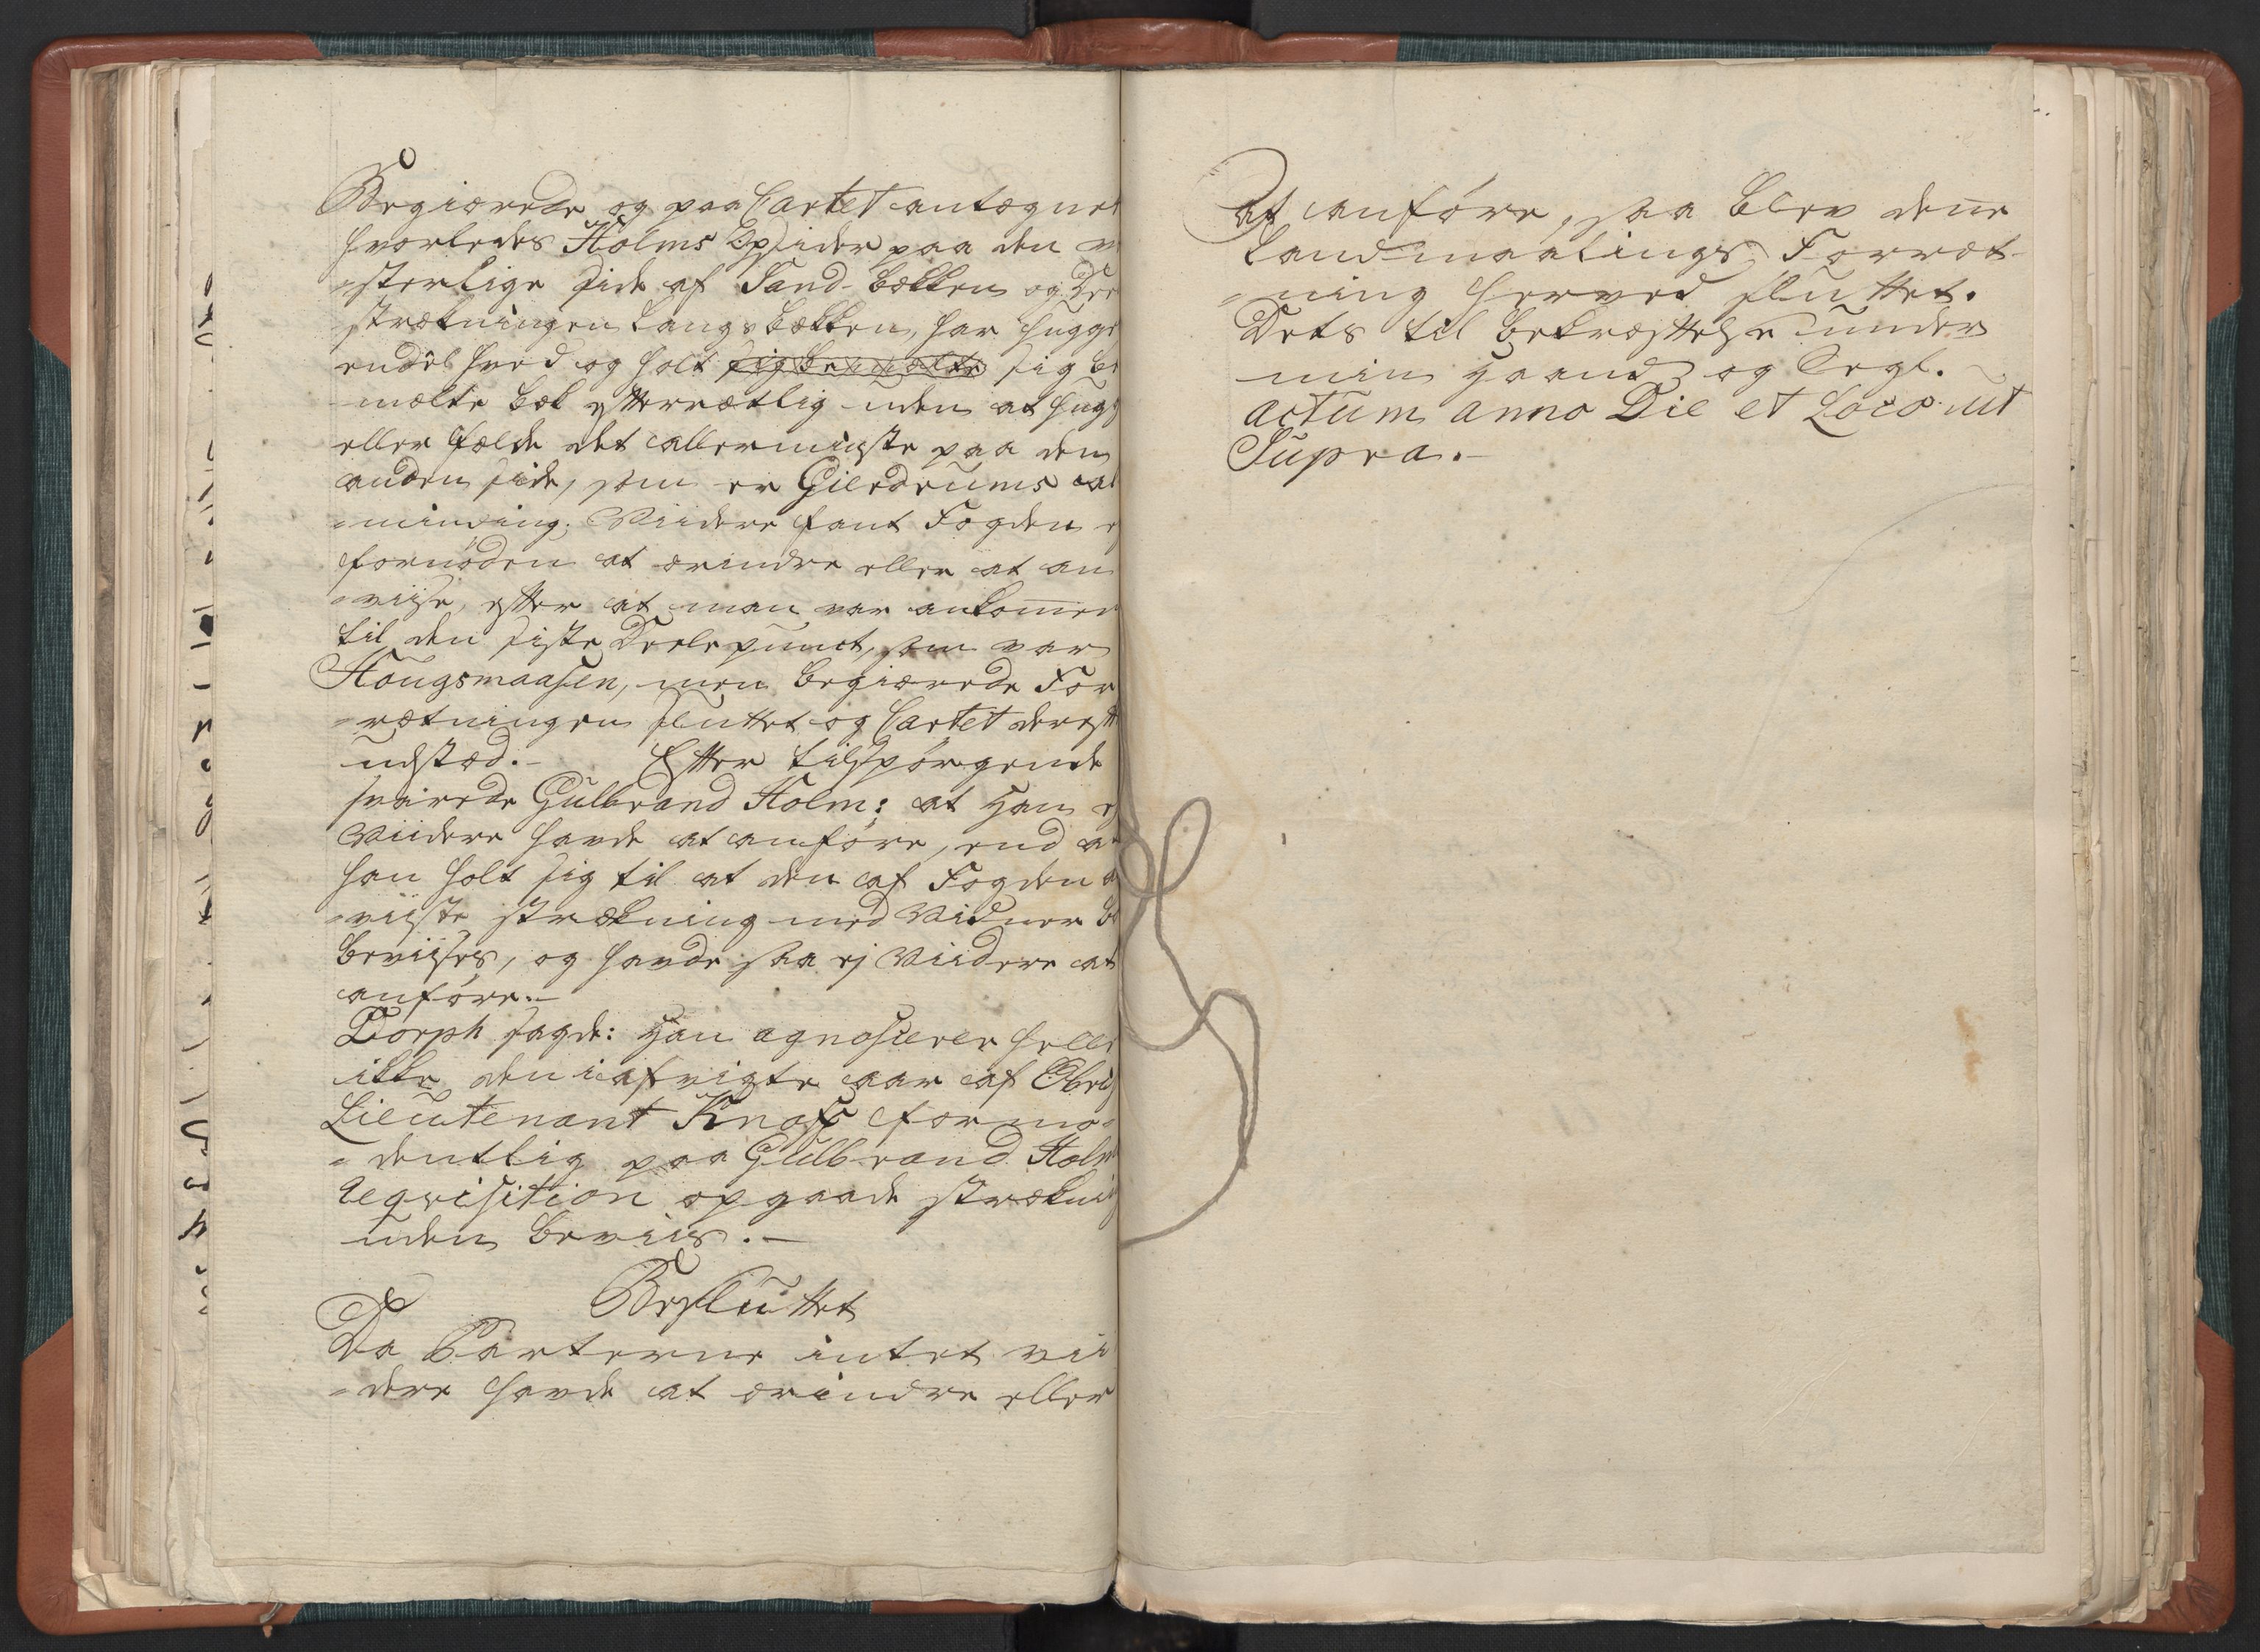 Begiærede og paa Cartet antægnet
hvorledes Holms Opsider paa den v
=sterlige side af Sand-bækken og Dee
strækningen langs bækken, har hugge
endel hved og holt sig bemælte sig be
mælte bek efterrætlig uden at hugg
eller fælde det allermindste paa den
anden side, som er Gilederums al
=minding. Viidere fant Fogden ej
fornøden at erindre eller at an
=viise, efter at man var ankommen
til den siste Deele punct, som var
Hougsmaasen, men begiærede For
=rætningen sluttet og Cartet dereft
udstæd.- Efter tilspørgende
svarede Gulbrand Holm: at han ej
Viidere havde at anføre, end at
han holt sig til at den af Fogden a
=viiste strækning med Vidner b
beviises, og havde saa ej Viidere at
anføre.-
Dorph sagde: han agnoscerer helle
ikke den i afvigte aar af Obrist
Lieutenant Knoff formo=
=dentlig paa Gulbrand Holm
Reqvisition opgaade strækni
uden beviis.-
Besluttet
Da Parterne intet vii
=dere havde at erindre eller
at anføre, saa blev denne
Landmaalings Forret-
=ning herved sluttet.
Dets til bekræftelse under
min haand og Segl.
actum anno Die et Loco ut
Supra.-